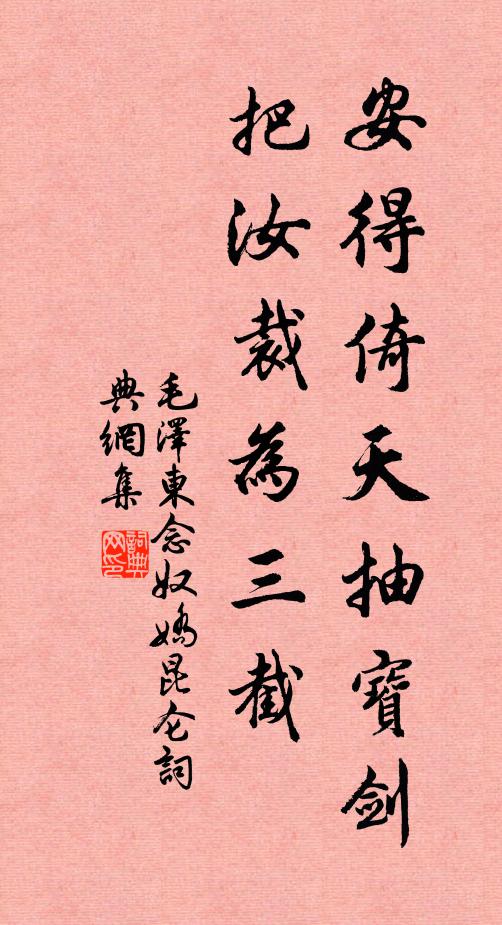 安得倚天抽寶劍
把汝裁為三截
毛澤東念奴嬌昆仑詞
典網集
詞典
网印